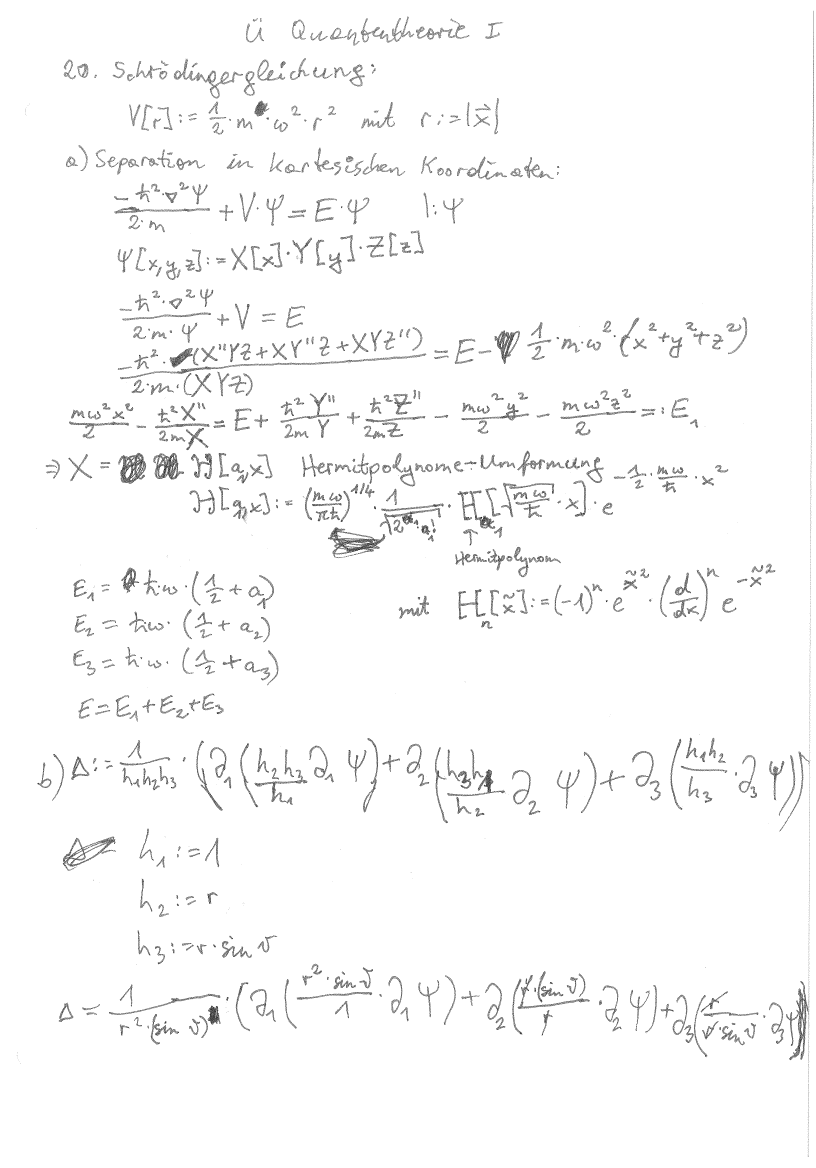 Ü Quantentheorie I
20. Schrödingergleichung:
V[r]:= 1/2 · m · ω² · r² mit r:=|x⃗|
a) Separation in kartesischen Koordinaten:
(-ħ²·∇²Ψ)/(2·m) + V·Ψ = E·Ψ |:Ψ
Ψ[x,y,z]:= X[x]·Y[y]·Z[z]
(-ħ²·∇²Ψ)/(2·m·Ψ) + V = E
(-ħ²·(X''YZ+XY''Z+XYZ''))/(2·m·(XYZ)) = E - 1/2·m·ω²·(x²+y²+z²)
mω²x²/2 - ħ²X''/(2mX) = E + ħ²Y''/(2mY) + ħ²Z''/(2mZ) - mω²y²/2 - mω²z²/2 =: E₁
⇒ X = H[a₁,x] Hermitpolynome-Umformung
H[a₁,x]:= (mω/(πħ))^(1/4) · 1/√(2^(a₁)·a₁!) · H_(a₁)[√(mω/ħ)·x]·e^(-1/2·mω/ħ·x²)
↑
Hermitpolynom
E₁ = ħω·(1/2+a₁)
mit H_n[x̃]:=(-1)ⁿ·e^(x̃²)·(d/dx)ⁿ e^(-x̃²)
E₂ = ħω·(1/2+a₂)
E₃ = ħ·ω·(1/2+a₃)
E=E₁+E₂+E₃
b) Δ:= 1/(h₁h₂h₃)·(∂₁(h₂h₃/h₁ ∂₁ Ψ)+∂₂(h₃h₁/h₂ ∂₂ Ψ)+∂₃(h₁h₂/h₃·∂₃Ψ))
h₁:=1
h₂:=r
h₃:=r·sin ϑ
Δ = 1/(r²·(sin ϑ))·(∂₁(r²·sin ϑ/1·∂₁Ψ)+∂₂(r·(sin ϑ)/r·∂₂Ψ)+∂₃(r/(r·sin ϑ)·∂₃Ψ))